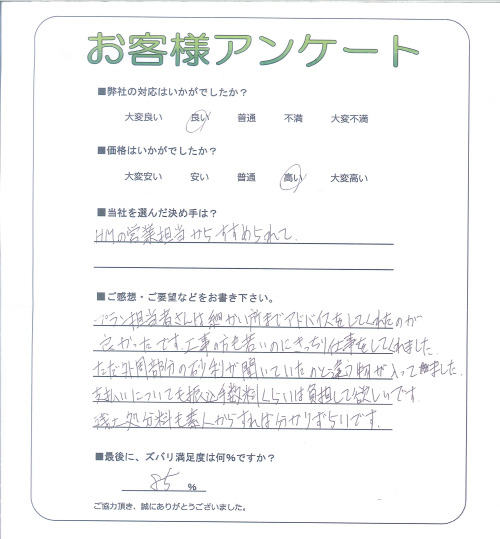 お客様アンケート
■弊社の対応はいかがでしたか？
大変良い 良い 普通 不満 大変不満
■価格はいかがでしたか？
大変安い 安い 普通 高い 大変高い
■当社を選んだ決め手は？
HMの営業担当からすすめられて.
■ご感想・ご要望などをお書き下さい。
プラン担当者さんは細かい所までアドバイスをしてくれたのが
良かったです.工事の方も若いのにきっちり仕事をしてくれました.
ただ外周部分の砂利が聞いていたのと違う物が入って来ました.
支払いについても振込手数料くらいは負担して欲しいです.
残土処分料も素人からすれば分かりずらいです.
■最後に、ズバリ満足度は何％ですか？
85 %
ご協力頂き、誠にありがとうございました。